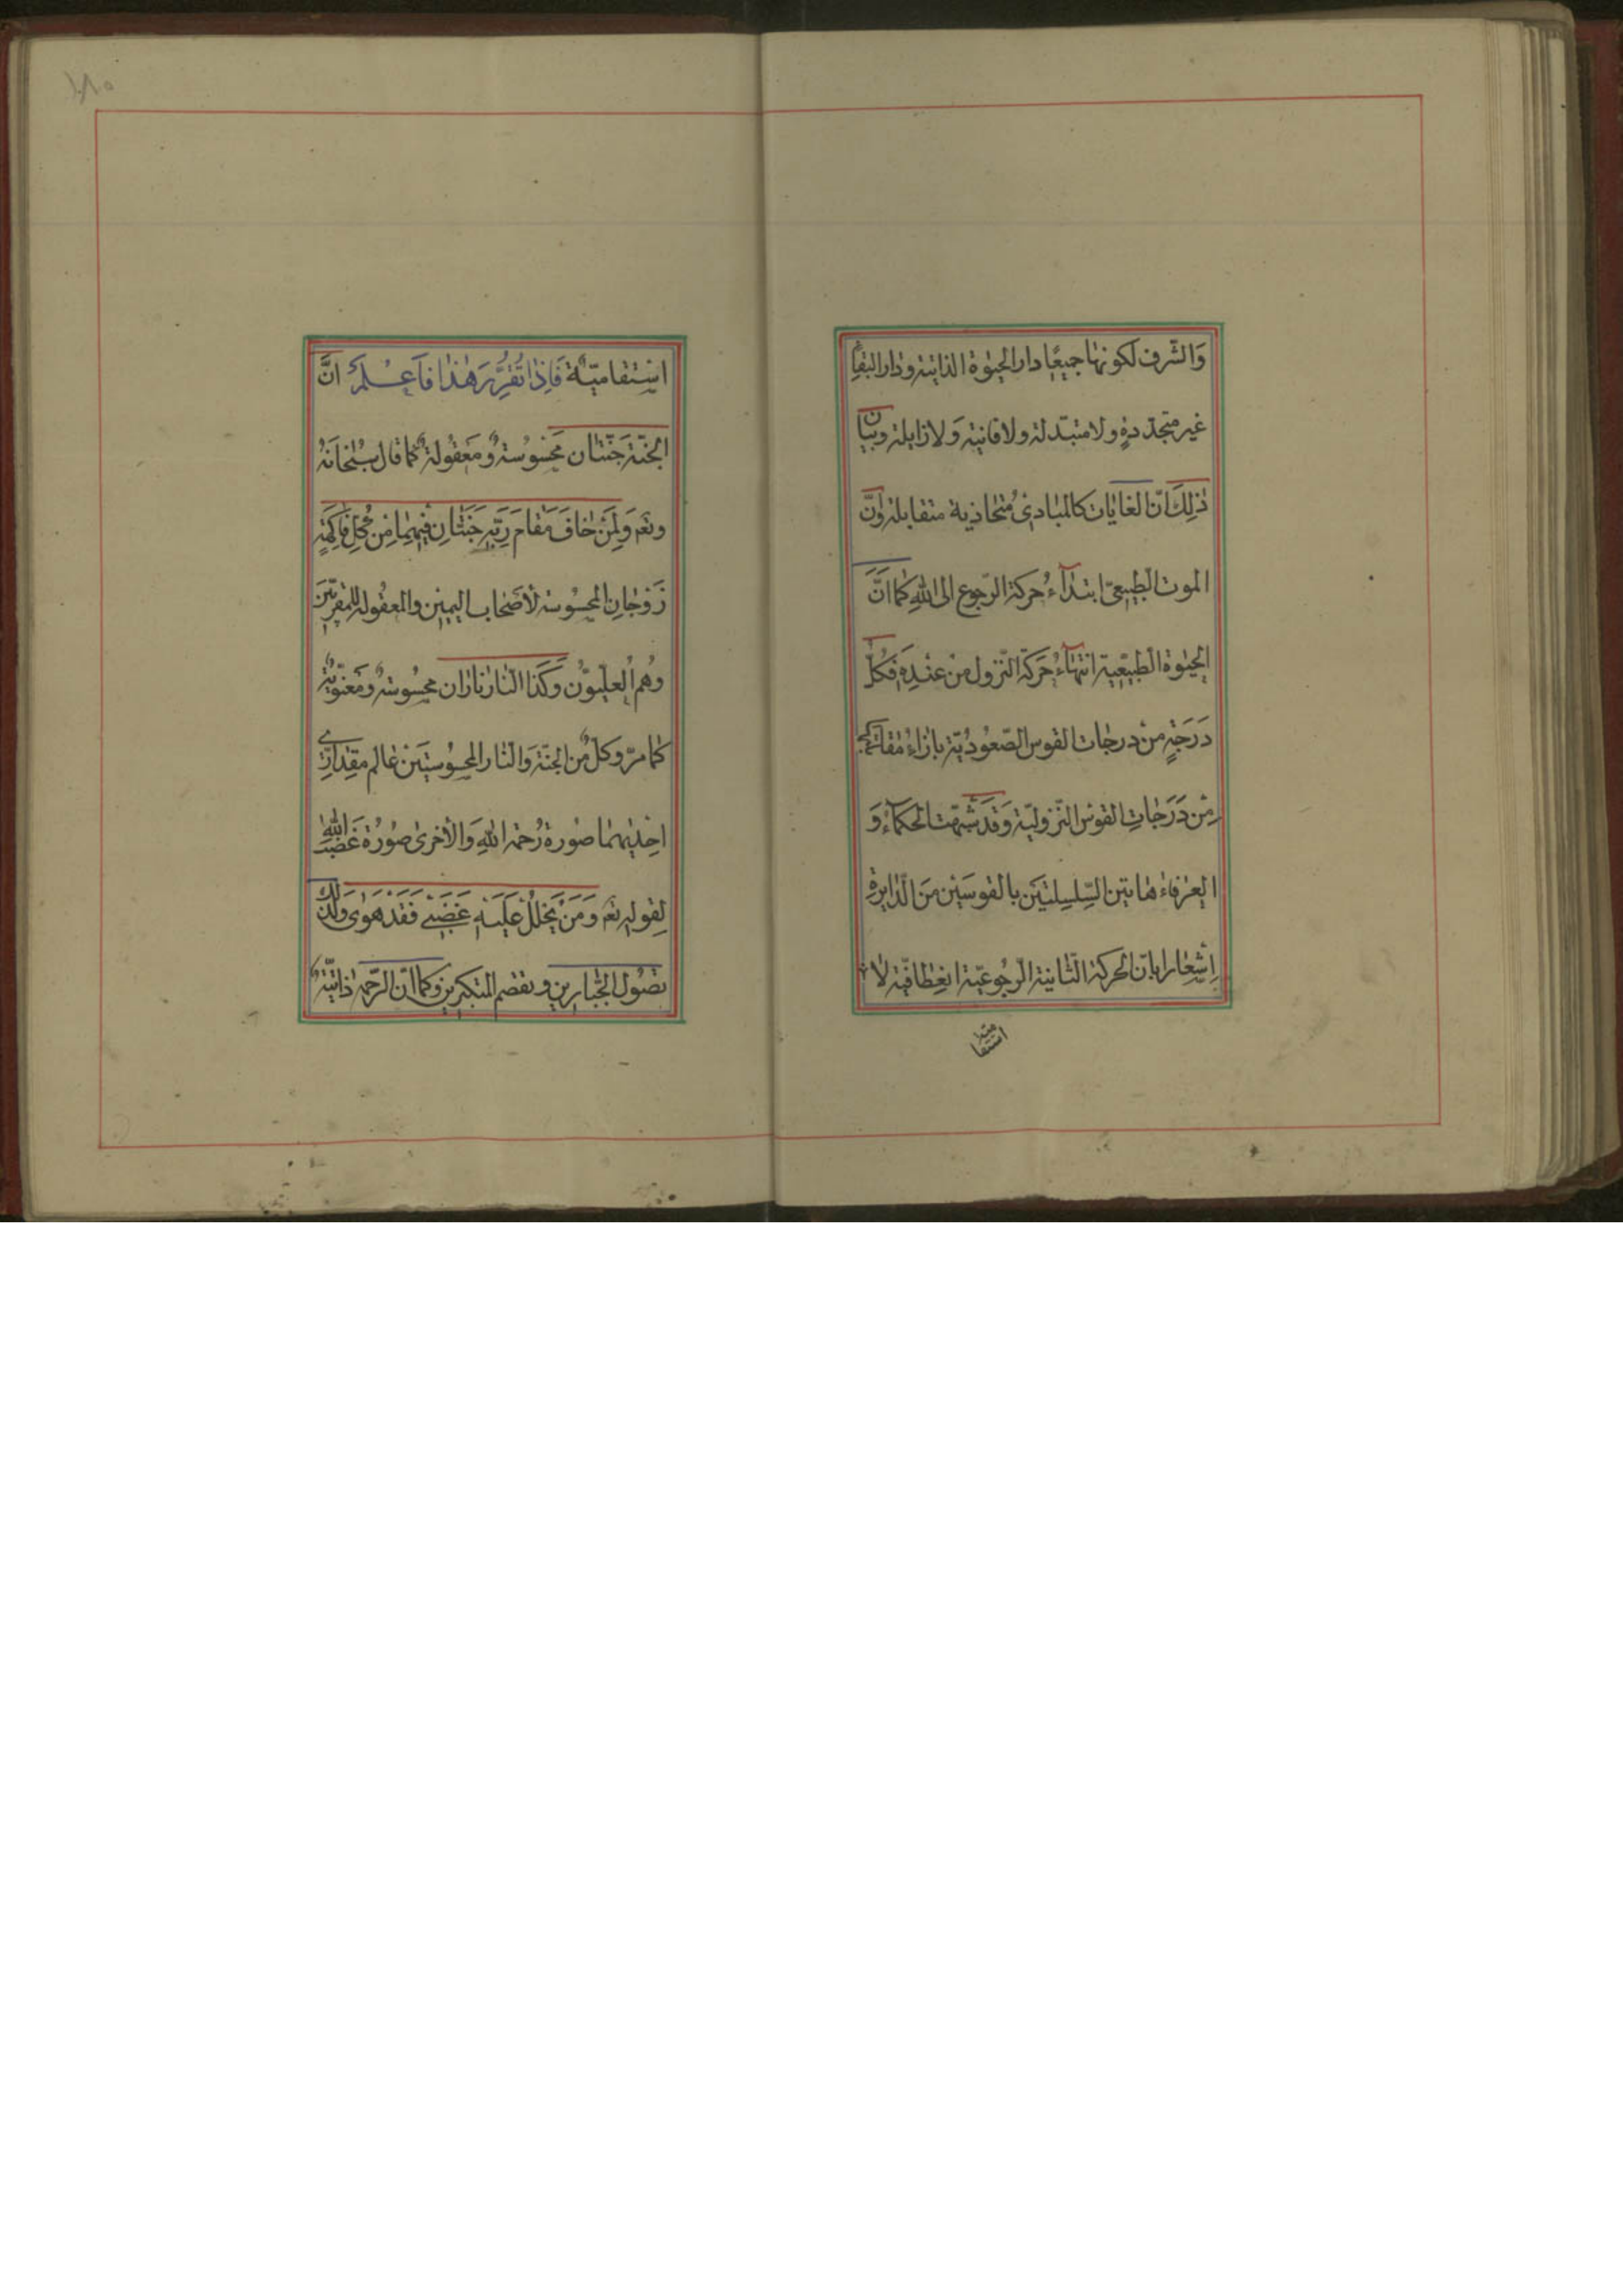 وَالشّرف لكونها جميعًا دار الحيٰوة الذاتية ودار البقآء
غير متجدّدةٍ ولا متبدّلة ولا فانية وَلا زايلة وبيان
ذلِكَ انّ الغايات كالمبادى مُتحاذية متقابلة وانَّ
الموت الطبيعىّ ابتدآءُ حركة الرّجوع الى اللهِ كما انَّ
الحيٰوة الطبيعية انتهآءُ حَركة النّزول من عندِهِ فكلّ
دَرَجَةٍ من درجات القوس الصّعُوديّة بازاءِ مقابلتها
مِن دَرَجاتِ القوس النّزوليّة وَقد شبّهت الحكمآءُ وَ
العرفاء هاتين السِّلسِلتَين بالقوسَين منَ الدّايرة
اِشعارا بانّ الحركة الثّانية الرّجُوعيّة انعِطافيّة لا
استقا
ميّة
استقاميّة فَاِذا تقَرَّرَ هٰذا فَاعْلَمْ انَّ
الجنّة جَنّتان محَسُوسة وُمَعقُولة كما قال سُبْحانَهُ
وتعَ وَلِمَنْ خافَ مَقامَ رَبِّهِ جَنّتانِ فيهِمٰا مِن كُلِّ فاكِهَةٍ
زَوْجانِ المحسُوسة لأَصحاب اليمين والمعقُولة للمقرّبين
وهُم العليّون وَكَذا النار ناران محسُوسةٌ ومَعنويّة
كما مرّ وكلّ من الجنّة وَالنار المحسُوستَين عالم مقدارى
احديٰهما صُورة رُحمة اللهِ وَالأخرى صُورُة غَضب اللهِ
لِقولهِ تعَ وَمَنْ يَحْلُلْ عَلَيْهِ غَضَبى فَقَد هَوٰى وَلذلك
تصُول الجبّارين وتقصم المتكبرين وكما انّ الرّحمة ذاتيّة